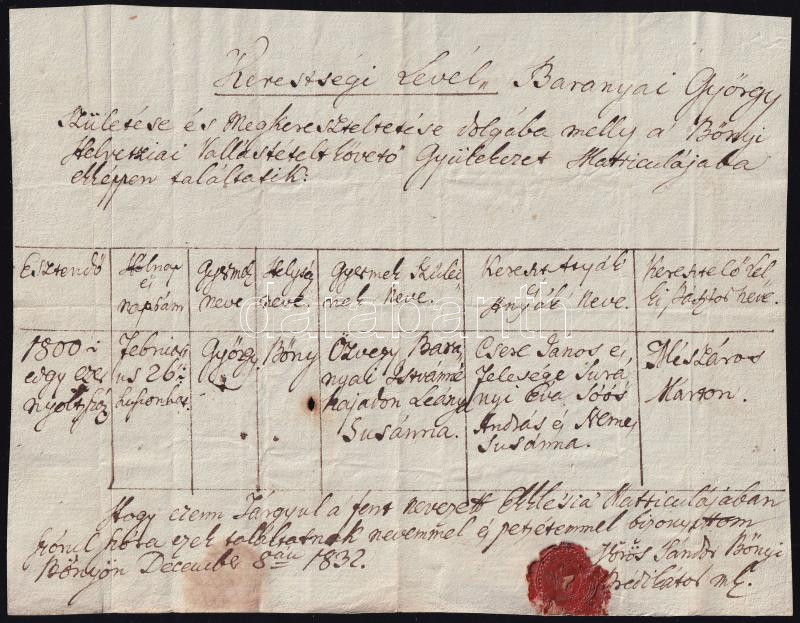 Keresztségi Levél„ Baranyai György
Születése és Megkereszteltetése dolgába melly a' Bőnyi
Helvetziai Vallástételt követő Gyülekezet Matriculájába
ekképpen találtatik:
Esztendő
Holnap és napszám
Gyermek neve
Helység neve.
Gyermek Szüleinek Neve.
Kereszt Atyák Anyák Neve.
Keresztelő Lelki Pásztor Neve.
1800 i
egy ezer
nyoltzszáz
Februari
us 26
György
Bőny
Özvegy Bara
nyai Istvánné
hajadon Leány
Susánna.
Csere János és
felesége Surá
nyi Éva, Soós
András és Nemes
Susánna.
Mészáros
Márton.
Hogy ezenn Tárgyul a' fent nevezett Ekklésia Matriculájában
szórul szóra ezek találtatnak nevemmel és petsétemmel bizonyittom
Bőnyön December 8án 1832.
Vörös Sándor Bőnyi
Predikátor mk.
darabanth